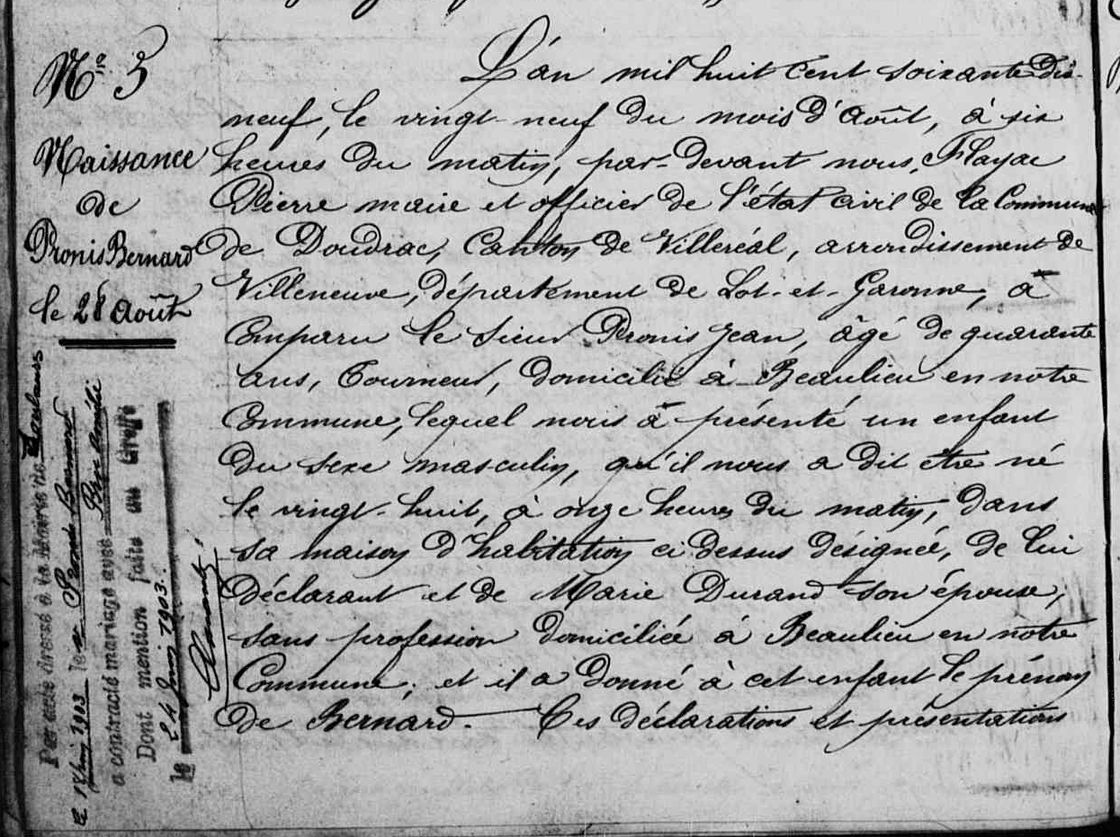 Nº 5
Naissance
de
Pronis Bernard
le 28 Août
L'an mil huit cent soixante dix-
neuf, le vingt-neuf du mois d'Août, à six
heures du matin, par-devant nous, Flayac
Pierre maire et officier de l'état civil de la Commune
de Doudrac, Canton de Villeréal, arrondissement de
Villeneuve, département de Lot-et-Garonne, à
Comparu le sieur Pronis Jean, âgé de quarante
ans, Tourneur, domicilié à Beaulieu en notre
Commune, lequel nous à présenté un enfant
du sexe masculin, qu'il nous a dit être né
le vingt-huit, à onze heures du matin, dans
sa maison d'habitation ci dessus désignée, de lui
déclarant et de Marie Durand son épouse,
sans profession domiciliée à Beaulieu en notre
Commune; et il a donné à cet enfant le prénom
de Bernard. Ces déclarations et présentations
Par acte dressé à la Mairie de
le 18 Juin 1903 le Bernard
a contracté mariage avec
Dont mention faite au Greffe
24 Juin 1903.
le